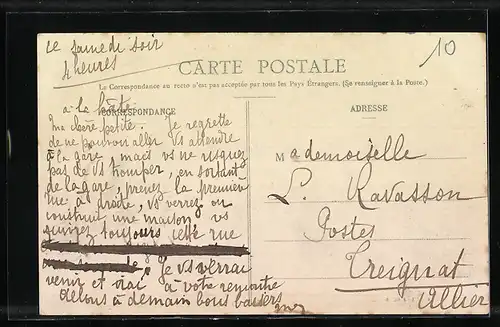 ce samedi soir
4 heures
10
CARTE POSTALE
La Correspondance au recto n'est pas acceptée par tous les Pays Étrangers. (Se renseigner à la Poste.)
à la hâte
CORRESPONDANCE
ADRESSE
Ma chère petite. Je regrette
de ne pouvoir aller vs attendre
à la gare, mais vs ne risquez
pas de vs tromper, en sortant
de la gare, prenez la première
rue à droite, vs verrez on
construit une maison, vs
suivrez toujours cette rue
Je vs verrai
venir et irai à votre rencontre
à demain bons baisers
Mademoiselle
L. Ravasson
Postes
Treignat
Allier